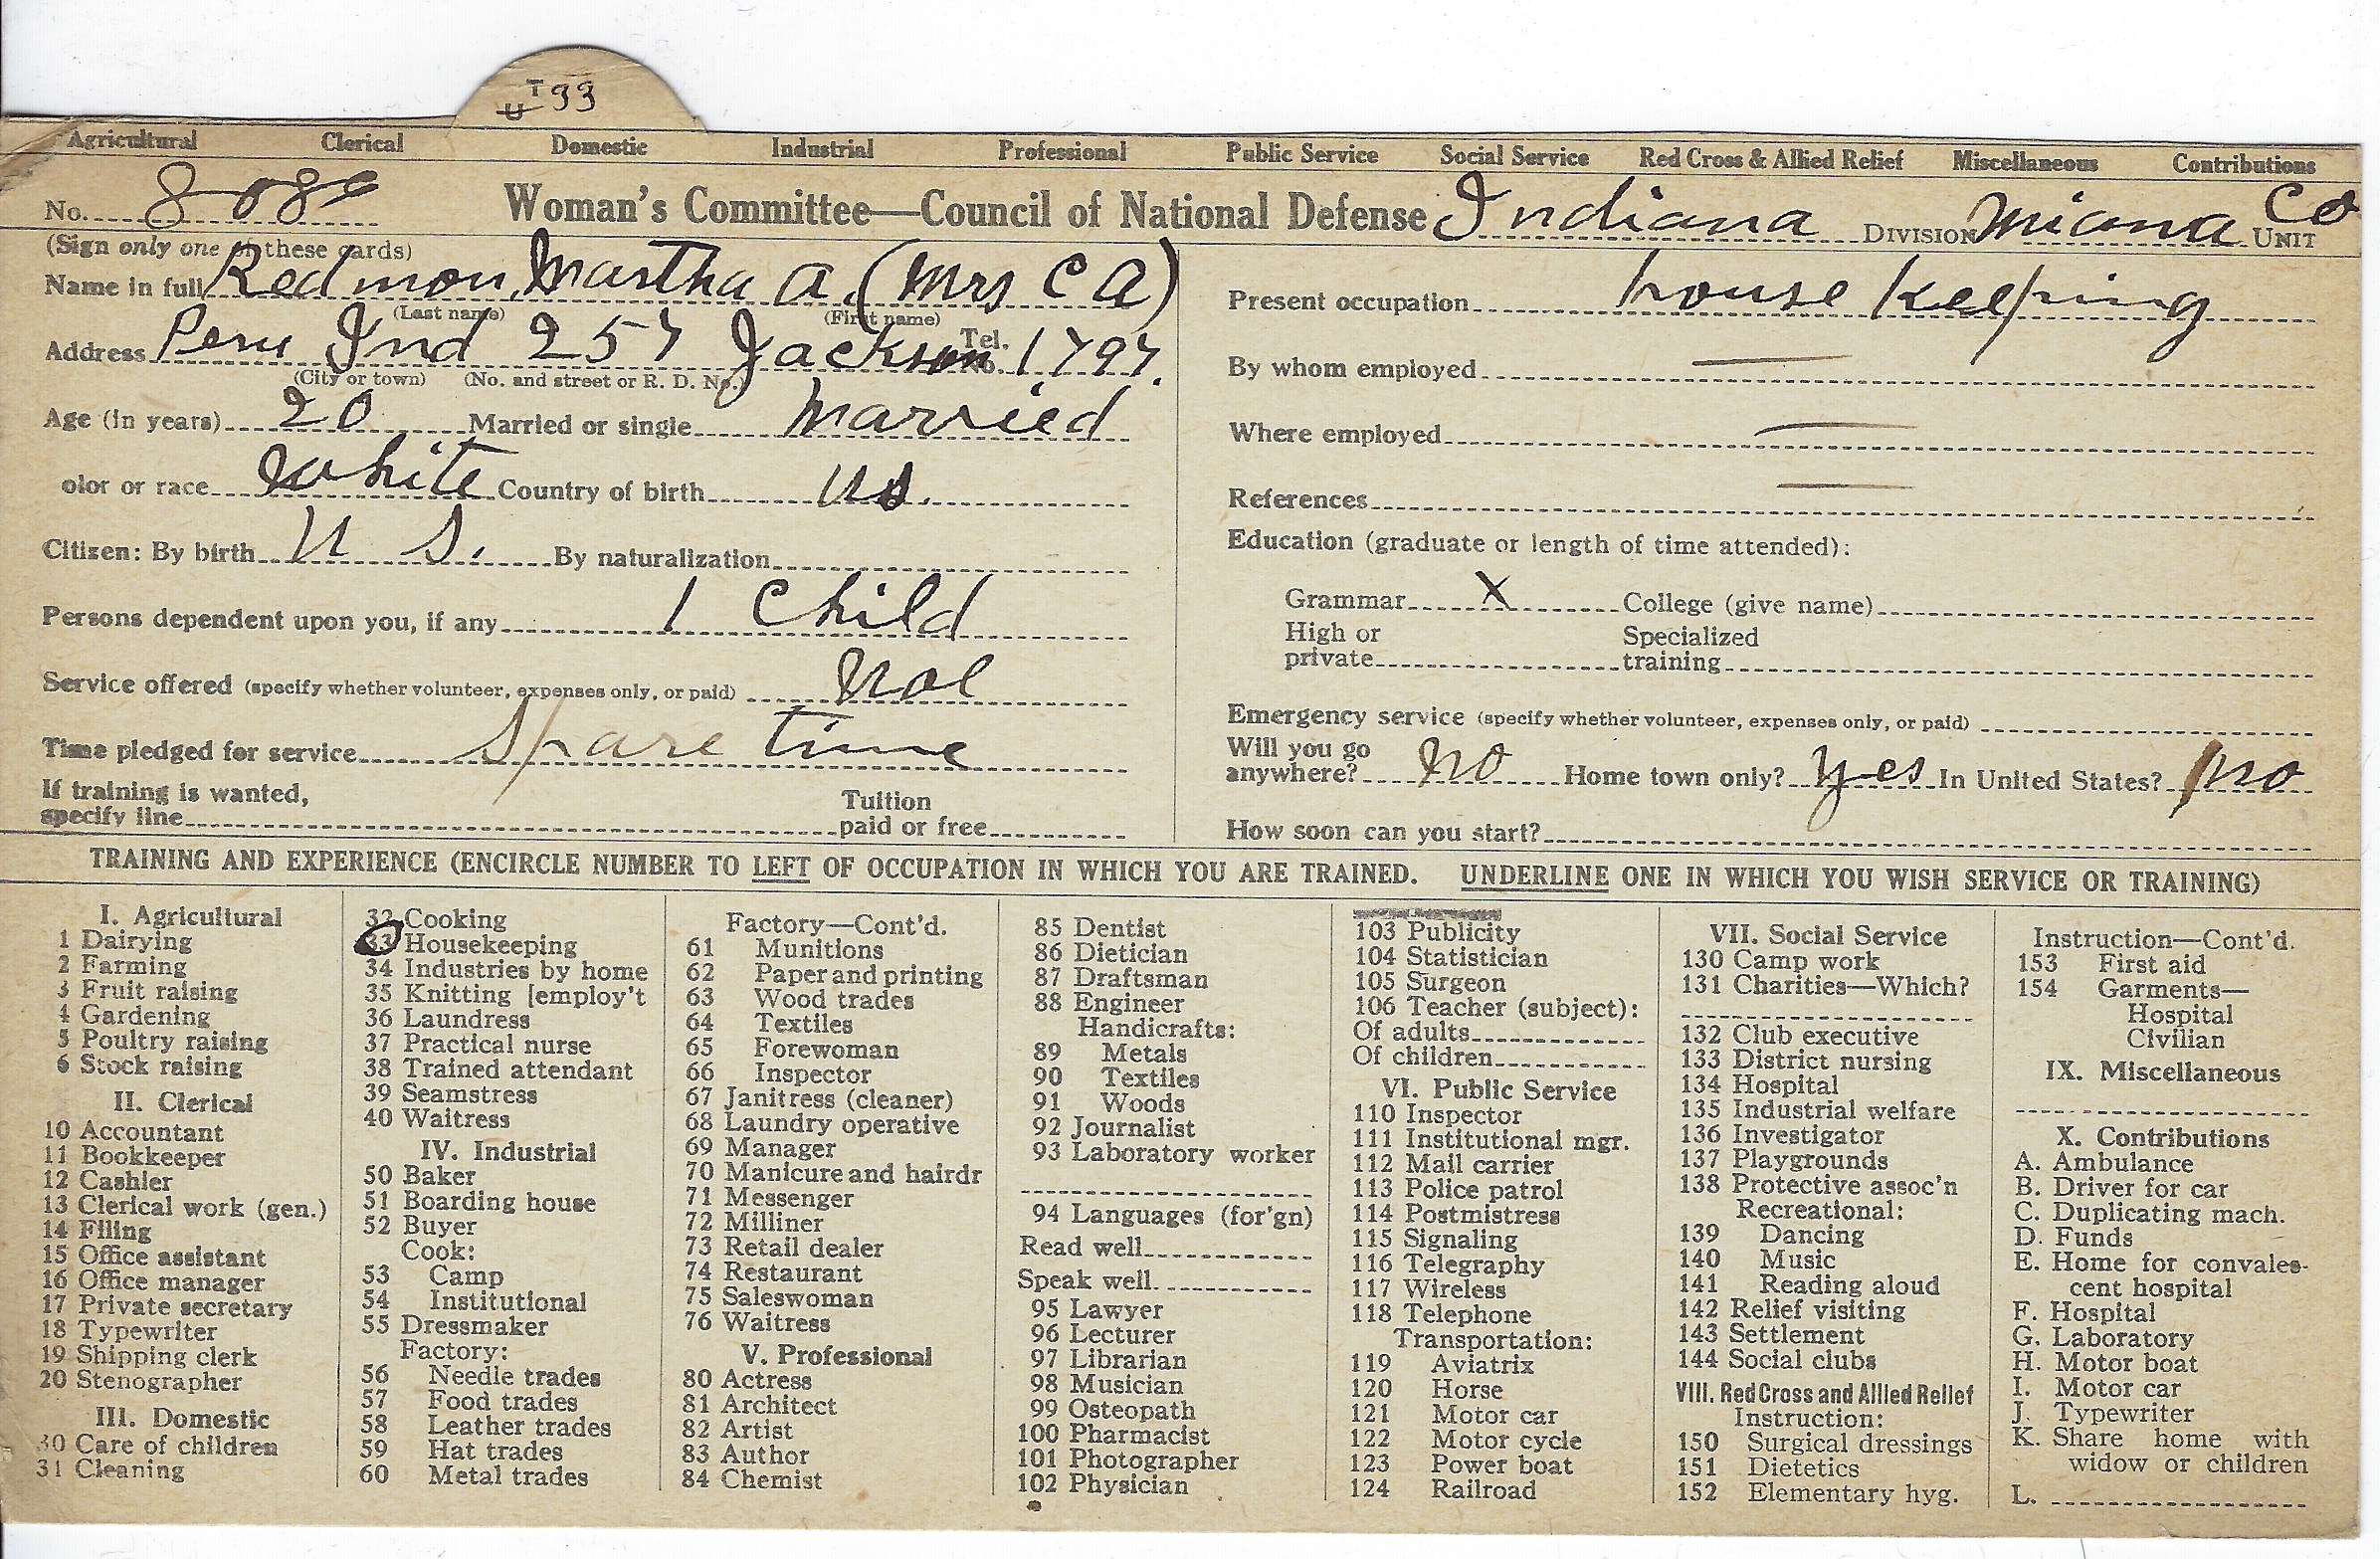 T 33
U
Agricultural Clerical Domestic Industrial Professional Public Service Social Service Red Cross & Allied Relief Miscellaneous Contributions
No. 8089 Woman's Committee—Council of National Defense Indiana DIVISION Miama Co UNIT
(Sign only one of these cards)
Name in full Redmon, Martha A. (Mrs C A)
(Last name) (First name)
Address Peru Ind 257 Jackson Tel. No. 1797.
(City or town) (No. and street or R. D. No.)
Age (in years) 20 Married or single Married
olor or race White Country of birth US.
Citizen: By birth U S. By naturalization
Persons dependent upon you, if any 1 Child
Service offered (specify whether volunteer, expenses only, or paid) Vol
Time pledged for service Spare time
If training is wanted,
specify line Tuition paid or free
Present occupation house keeping
By whom employed —
Where employed —
References —
Education (graduate or length of time attended):
Grammar X College (give name)
High or private Specialized training
Emergency service (specify whether volunteer, expenses only, or paid)
Will you go anywhere? No Home town only? Yes In United States? No
How soon can you start?
TRAINING AND EXPERIENCE (ENCIRCLE NUMBER TO LEFT OF OCCUPATION IN WHICH YOU ARE TRAINED. UNDERLINE ONE IN WHICH YOU WISH SERVICE OR TRAINING)
I. Agricultural
1 Dairying
2 Farming
3 Fruit raising
4 Gardening
5 Poultry raising
6 Stock raising
II. Clerical
10 Accountant
11 Bookkeeper
12 Cashier
13 Clerical work (gen.)
14 Filing
15 Office assistant
16 Office manager
17 Private secretary
18 Typewriter
19 Shipping clerk
20 Stenographer
III. Domestic
30 Care of children
31 Cleaning
32 Cooking
33 Housekeeping
34 Industries by home
35 Knitting [employ't
36 Laundress
37 Practical nurse
38 Trained attendant
39 Seamstress
40 Waitress
IV. Industrial
50 Baker
51 Boarding house
52 Buyer
Cook:
53 Camp
54 Institutional
55 Dressmaker
Factory:
56 Needle trades
57 Food trades
58 Leather trades
59 Hat trades
60 Metal trades
Factory—Cont'd.
61 Munitions
62 Paper and printing
63 Wood trades
64 Textiles
65 Forewoman
66 Inspector
67 Janitress (cleaner)
68 Laundry operative
69 Manager
70 Manicure and hairdr
71 Messenger
72 Milliner
73 Retail dealer
74 Restaurant
75 Saleswoman
76 Waitress
V. Professional
80 Actress
81 Architect
82 Artist
83 Author
84 Chemist
85 Dentist
86 Dietician
87 Draftsman
88 Engineer
Handicrafts:
89 Metals
90 Textiles
91 Woods
92 Journalist
93 Laboratory worker
94 Languages (for'gn)
Read well
Speak well
95 Lawyer
96 Lecturer
97 Librarian
98 Musician
99 Osteopath
100 Pharmacist
101 Photographer
102 Physician
103 Publicity
104 Statistician
105 Surgeon
106 Teacher (subject):
Of adults
Of children
VI. Public Service
110 Inspector
111 Institutional mgr.
112 Mail carrier
113 Police patrol
114 Postmistress
115 Signaling
116 Telegraphy
117 Wireless
118 Telephone
Transportation:
119 Aviatrix
120 Horse
121 Motor car
122 Motor cycle
123 Power boat
124 Railroad
VII. Social Service
130 Camp work
131 Charities—Which?
132 Club executive
133 District nursing
134 Hospital
135 Industrial welfare
136 Investigator
137 Playgrounds
138 Protective assoc'n
Recreational:
139 Dancing
140 Music
141 Reading aloud
142 Relief visiting
143 Settlement
144 Social clubs
VIII. Red Cross and Allied Relief
Instruction:
150 Surgical dressings
151 Dietetics
152 Elementary hyg.
Instruction—Cont'd.
153 First aid
154 Garments—
Hospital
Civilian
IX. Miscellaneous
X. Contributions
A. Ambulance
B. Driver for car
C. Duplicating mach.
D. Funds
E. Home for convales-
cent hospital
F. Hospital
G. Laboratory
H. Motor boat
I. Motor car
J. Typewriter
K. Share home with
widow or children
L.